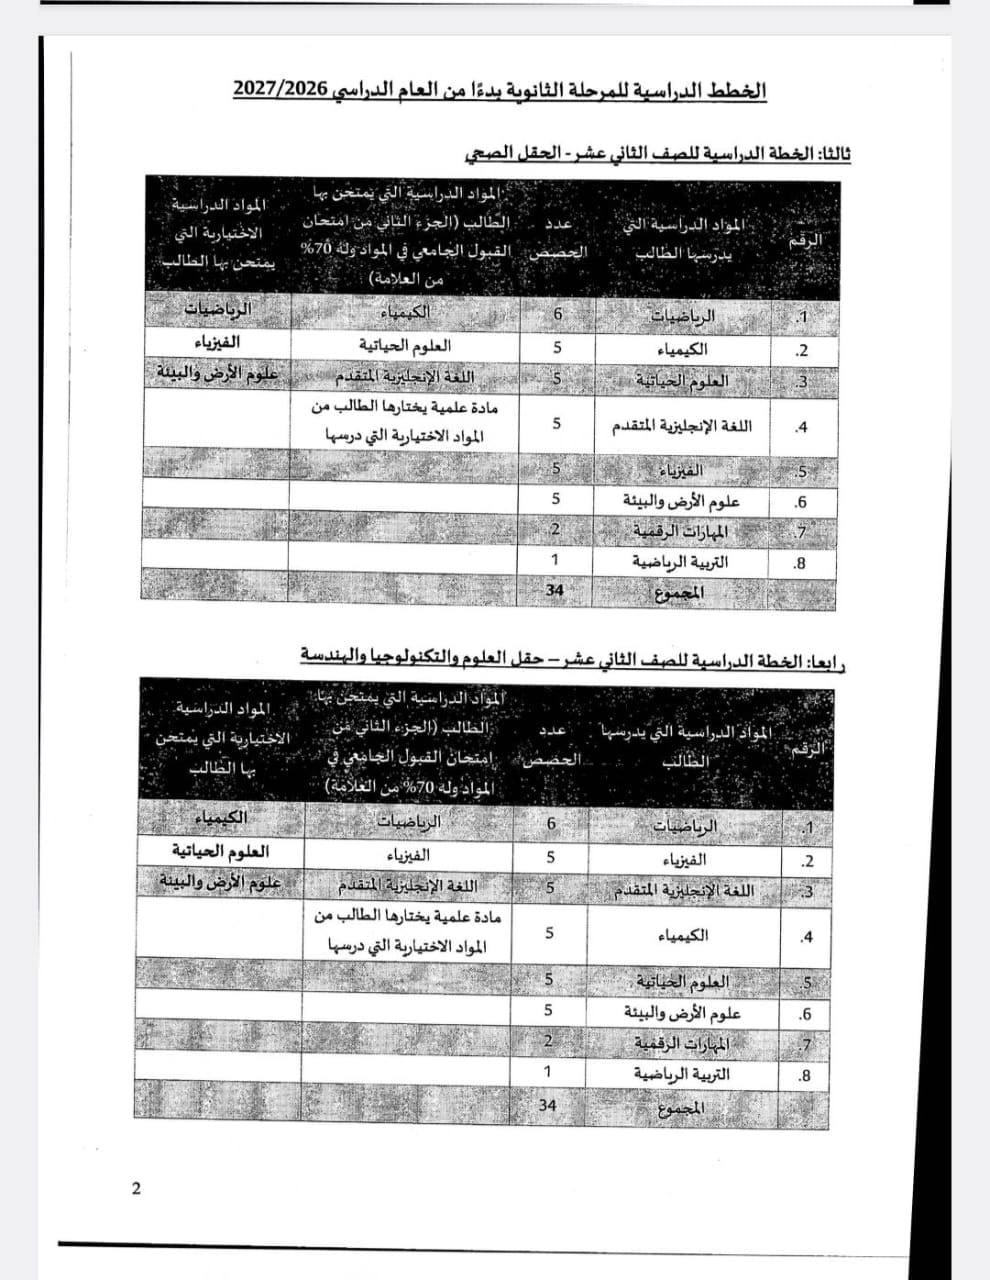 الخطط الدراسية للمرحلة الثانوية بدءًا من العام الدراسي 2027/2026
ثالثا: الخطة الدراسية للصف الثاني عشر - الحقل الصحي
الرقم | المواد الدراسية التي يدرسها الطالب | عدد الحصص | المواد الدراسية التي يمتحن بها الطالب (الجزء الثاني من امتحان القبول الجامعي في المواد وله 70% من العلامة) | المواد الدراسية الاختيارية التي يمتحن بها الطالب
1. | الرياضيات | 6 | الكيمياء | الرياضيات
2. | الكيمياء | 5 | العلوم الحياتية | الفيزياء
3. | العلوم الحياتية | 5 | اللغة الإنجليزية المتقدم | علوم الأرض والبيئة
4. | اللغة الإنجليزية المتقدم | 5 | مادة علمية يختارها الطالب من المواد الاختيارية التي درسها
5. | الفيزياء | 5
6. | علوم الأرض والبيئة | 5
7. | المهارات الرقمية | 2
8. | التربية الرياضية | 1
المجموع | 34
رابعا: الخطة الدراسية للصف الثاني عشر – حقل العلوم والتكنولوجيا والهندسة
الرقم | المواد الدراسية التي يدرسها الطالب | عدد الحصص | المواد الدراسية التي يمتحن بها الطالب (الجزء الثاني من امتحان القبول الجامعي في المواد وله 70% من العلامة) | المواد الدراسية الاختيارية التي يمتحن بها الطالب
1. | الرياضيات | 6 | الرياضيات | الكيمياء
2. | الفيزياء | 5 | الفيزياء | العلوم الحياتية
3. | اللغة الإنجليزية المتقدم | 5 | اللغة الإنجليزية المتقدم | علوم الأرض والبيئة
4. | الكيمياء | 5 | مادة علمية يختارها الطالب من المواد الاختيارية التي درسها
5. | العلوم الحياتية | 5
6. | علوم الأرض والبيئة | 5
7. | المهارات الرقمية | 2
8. | التربية الرياضية | 1
المجموع | 34
2